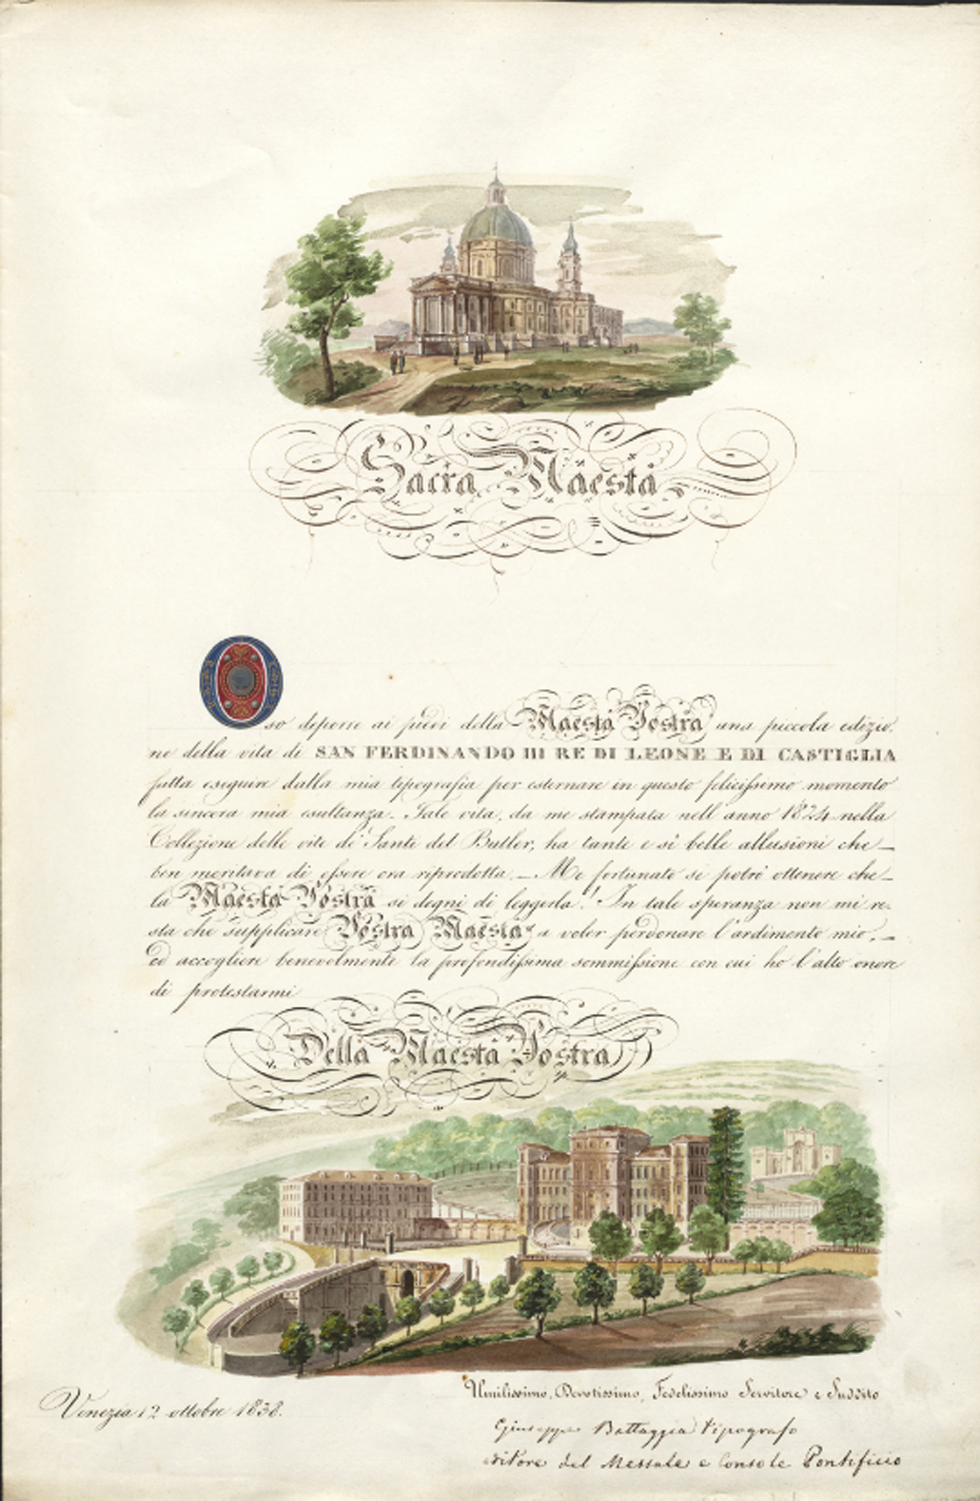 Sacra Maestà
Oso deporre ai piedi della Maestà Vostra una piccola edizio-
ne della vita di SAN FERDINANDO III RE DI LEONE E DI CASTIGLIA
fatta eseguire dalla mia tipografia per esternare in questo felicissimo momento
la sincera mia esultanza. Tale vita, da me stampata nell'anno 1824 nella
Collezione delle vite di Santi del Butler, ha tante e sì belle allusioni che
ben meritava di essere ora riprodotta. Me fortunato se potrò ottenere che
la Maestà Vostra si degni di leggerla! In tale speranza non mi re-
sta che supplicare Vostra Maestà a voler perdonare l'ardimento mio,
ed accogliere benevolmente la profondissima sommissione con cui ho l'alto onore
di protestarmi
Della Maestà Vostra
Umilissimo, Devotissimo, Fedelissimo Servitore e Suddito
Venezia 12 ottobre 1838.
Giuseppe Battaggia tipografo
editore del Messale e Console Pontificio